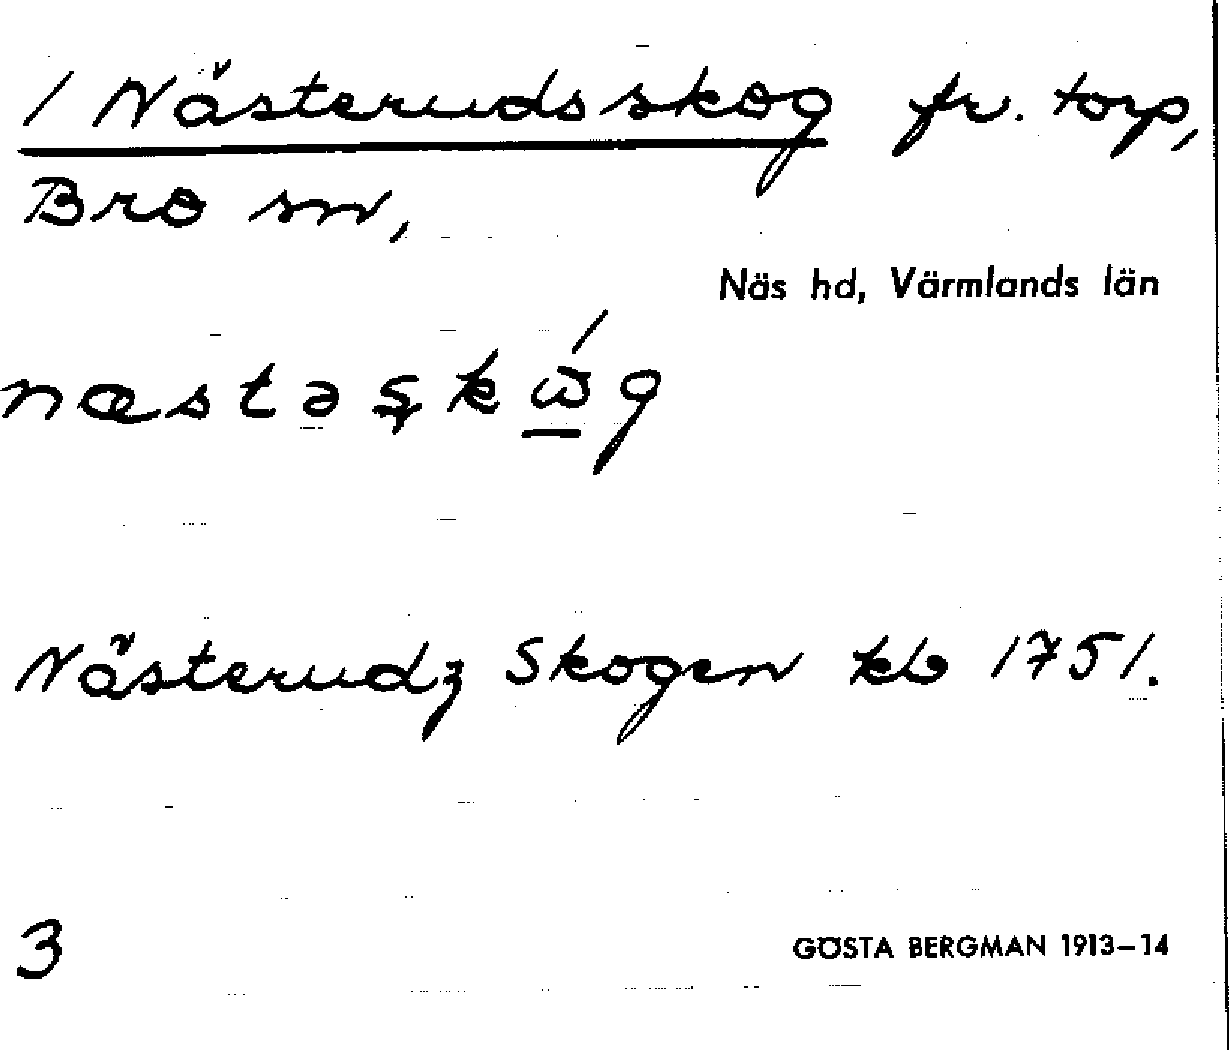 / Nästerudsskog fr. torp,
Bro sn,
Näs hd, Värmlands län
næstəşkώ̲g
Nästerudz Skogen kb 1751.
3
GÖSTA BERGMAN 1913–14